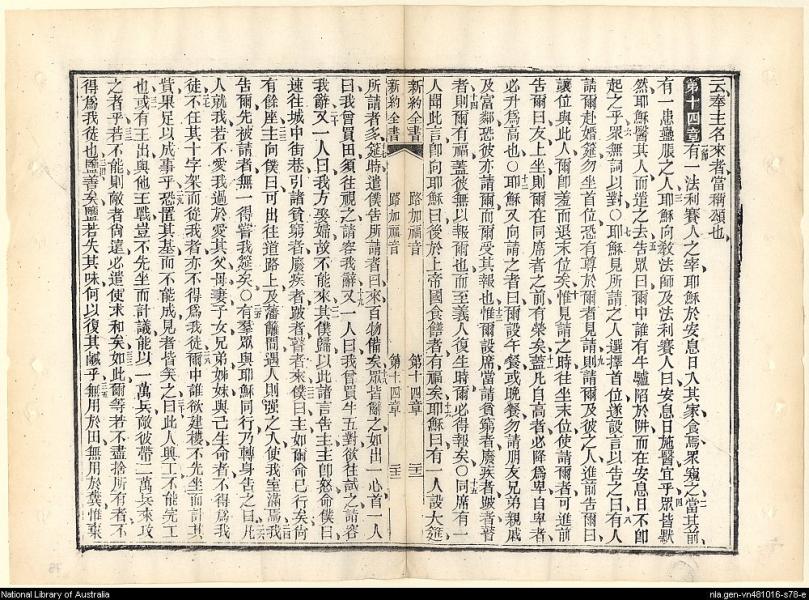 云奉主名來者當稱頌也
第十四章有一法利賽人之宰耶穌於安息日入其家食焉眾窺之當其前
有一患蠱脹之人耶穌向教法師及法利賽人曰安息日施醫宜乎眾皆默
然耶穌醫其人而遣之去告眾曰爾中誰有牛驢陷於阱而在安息日不即
起之乎眾無詞以對〇耶穌見所請之人選擇首位遂設言以告之曰有人
請爾赴婚筵勿坐首位恐有尊於爾者見請則請爾及彼之人進前告爾曰
讓位與此人爾即羞而退末位矣惟見請之時往坐末位使請爾者可進前
告爾曰友上坐則爾在同席者之前有榮矣蓋凡自高者必降為卑自卑者
必升為高也〇耶穌又向請之者曰爾設午餐或晚餐勿請朋友兄弟親戚
及富鄰恐彼亦請爾而爾受其報也惟爾設席當請貧窮者廢疾者跛者瞽
者則爾有福蓋彼無以報爾也而至義人復生時爾必得報矣〇同席有一
人聞此言即向耶穌曰後於上帝國食饍者有福矣耶穌曰有一人設大筵
新約全書 路加福音 第十四章
新約全書 路加福音 第十四章
所請者多筵時遣僕告所請者曰來百物備矣眾皆辭之如出一心首一人
曰我曾買田須往視之請容我辭又一人曰我曾買牛五對欲往試之請容
我辭又一人曰我方娶婦故不能來其僕歸以此諸言告主主即怒命僕曰
速往城中街巷引諸貧窮者廢疾者跛者瞽者來僕曰主如爾命已行矣尚
有餘座主向僕曰可出往道路上及藩籬間遇人則强之入使我室滿焉我
告爾先被請者無一得嘗我筵矣〇有羣眾與耶穌同行乃轉身告之曰凡
人就我若不愛我過於愛其父母妻子女兄弟姊妹與己生命者不得為我
徒不任其十字架而從我者亦不得為我徒爾中誰欲建樓不先坐而計其
費果足以成事乎恐置其基而不能成見者皆笑之曰此人興工不能完工
也或有王出與他王戰豈不先坐而計議能以一萬兵敵彼帶二萬兵來攻
之者乎若不能則敵者尚遠必遣使求和矣如此爾等若不盡捨所有者不
得為我徒也鹽善矣鹽若失其味何以復其鹹乎無用於田無用於糞惟棄
National Library of Australia
nla.gen-vn481016-s78-e